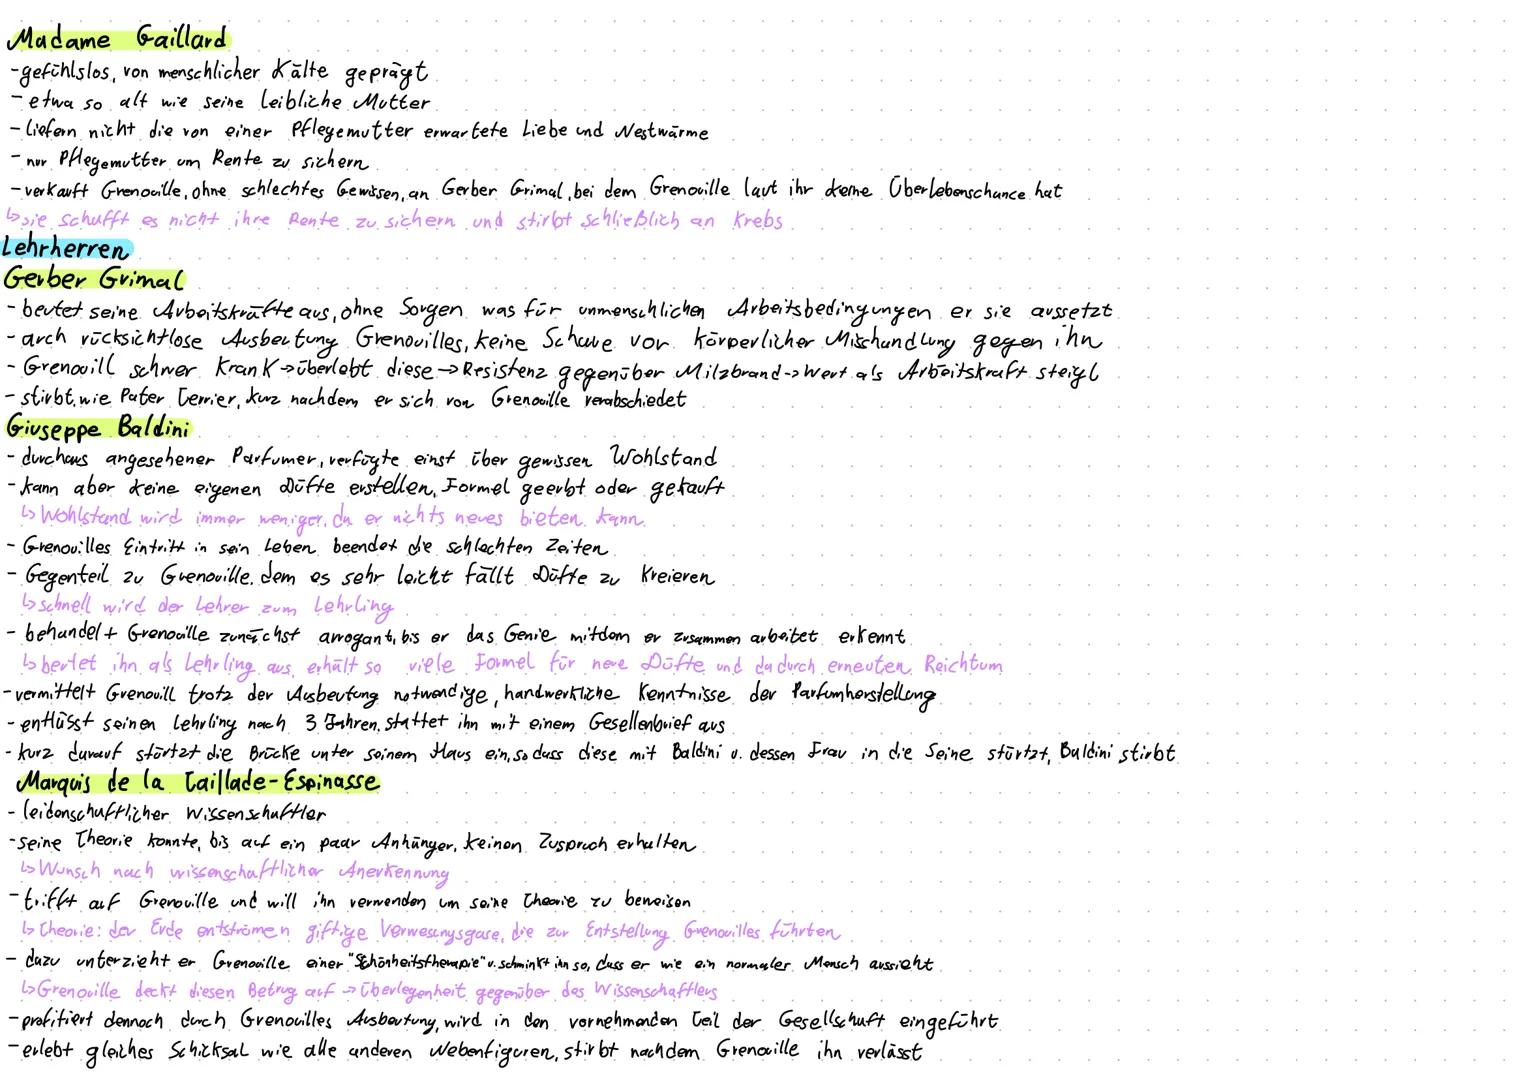 Madame Gaillard
-gefühlslos, von menschlicher Kälte geprägt
- etwa so alt wie seine leibliche Mutter
- liefern nicht die von einer Pflegemutter erwartete Liebe und Nestwärme
- nur Pflegemutter um Rente zu sichern
- verkauft Grenouille, ohne schlechtes Gewissen, an Gerber Grimal, bei dem Grenouille laut ihr keine Überlebenschance hat
↳ sie schafft es nicht ihre Rente zu sichern und stirbt schließlich an Krebs
Lehrherren
Gerber Grimal
- beutet seine Arbeitskräfte aus, ohne Sorgen was für unmenschlichen Arbeitsbedingungen er sie aussetzt
- auch rücksichtlose Ausbeutung Grenouilles, keine Scheue vor körperlicher Misshandlung gegen ihn
- Grenouill schwer krank → überlebt diese → Resistenz gegenüber Milzbrand → Wert als Arbeitskraft steigt
- stirbt, wie Pater Terrier, kurz nachdem er sich von Grenouille verabschiedet
Giuseppe Baldini
- durchaus angesehener Parfumer, verfügte einst über gewissen Wohlstand
- kann aber keine eigenen Düfte erstellen, Formel geerbt oder gekauft
↳ Wohlstand wird immer weniger, da er nichts neues bieten kann
- Grenouilles Eintritt in sein Leben beendet die schlechten Zeiten
- Gegenteil zu Grenouille, dem es sehr leicht fällt Düfte zu kreieren
↳ schnell wird der Lehrer zum Lehrling
- behandelt Grenouille zunächst arrogant, bis er das Genie mitdem er zusammen arbeitet erkennt
↳ beutet ihn als Lehrling aus, erhält so viele Formel für neue Düfte und dadurch erneuten Reichtum
- vermittelt Grenouill trotz der Ausbeutung notwendige, handwerkliche Kenntnisse der Parfumherstellung
- entlässt seinen Lehrling nach 3 Jahren, stattet ihn mit einem Gesellenbrief aus
- kurz darauf stürtzt die Brücke unter seinem Haus ein, so dass diese mit Baldini u. dessen Frau in die Seine stürtzt, Baldini stirbt
Marquis de la Taillade-Espinasse
- leidenschaftlicher Wissenschaftler
- seine Theorie konnte, bis auf ein paar Anhänger, keinen Zuspruch erhalten
↳ Wunsch nach wissenschaftlicher Anerkennung
- trifft auf Grenouille und will ihn verwenden um seine Theorie zu beweisen
↳ Theorie: der Erde entströmen giftige Verwesungsgase, die zur Entstellung Grenouilles führten
- dazu unterzieht er Grenouille einer "Schönheitstherapie" u. schminkt ihn so, dass er wie ein normaler Mensch aussieht
↳ Grenouille deckt diesen Betrug auf → Überlegenheit gegenüber des Wissenschaftlers
- profitiert dennoch durch Grenouilles Ausbeutung, wird in den vornehmenden Teil der Gesellschaft eingeführt
- erlebt gleiches Schicksal wie alle anderen Nebenfiguren, stirbt nachdem Grenouille ihn verlässt